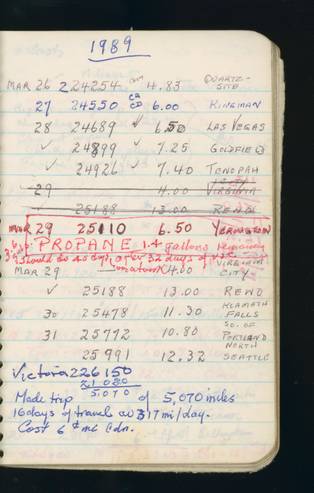 1989
MAR 26 2 24254 4.83 QUARTZ-SITE
27 24550 6.00 KINGMAN
28 24689 ✓ 6.50 LAS VEGAS
✓ 24899 ✓ 7.25 GOLDFIELD
✓ 24926 ✓ 7.40 TENOPAH
29 4.00 VIRGINIA
✓ 25188 13.00 RENO
MAR 29 25110 6.50 YERINGTON
PROPANE 1.4 gallons remaining
should be 40 days after 32 days of use
MAR 29 4.00 VIRGINIA CITY
✓ 25188 13.00 RENO
30 25478 11.30 KLAMATH FALLS
31 25772 10.80 SO. OF PORTLAND
25991 12.32 NORTH SEATTLE
Victoria 226150
21080
5,070
Made trip of 5,070 miles
16 days of travel av 317 mi/day.
Cost 6 ¢ mi Cdn.